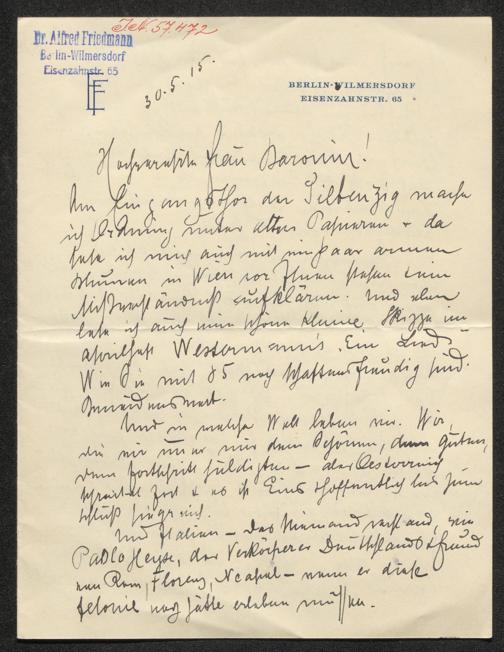 J.N. 57.472
Dr. Alfred Friedmann
Berlin-Wilmersdorf
Eisenzahnstr. 65
30.5.15.
BERLIN-WILMERSDORF
EISENZAHNSTR. 65
Hochverehrte Frau Baronin!
Am Eingangsthor der Siebenzig mache
ich Ordnung unter alten Papieren + da
sehe ich mich auch mit ein paar armen
Blumen in Wien vor Ihnen stehen + ein
Mißverständniß aufklären. Und eben
lese ich auch eine schöne kleine Skizze im
Aprilheft Westermann's "Ein Lied"
Wie Sie mit 85 noch schaffensfreudig sind.
Beneidenswert.
Und in welcher Welt leben wir. Wir,
die wir immer nur dem Schönen, dem guten,
dem Fortschritt huldigten – aber Oesterreich
schreitet fort + es ist Eins + hoffentlich bis zum
Schluß siegreich.
Und Italien – das Niemand verstand, wie
Paolo Heyse, der Verkörperer Deutschlands + Freund
von Rom, Florenz, Neapel – wenn er diese
Felonie noch hätte erleben müssen.